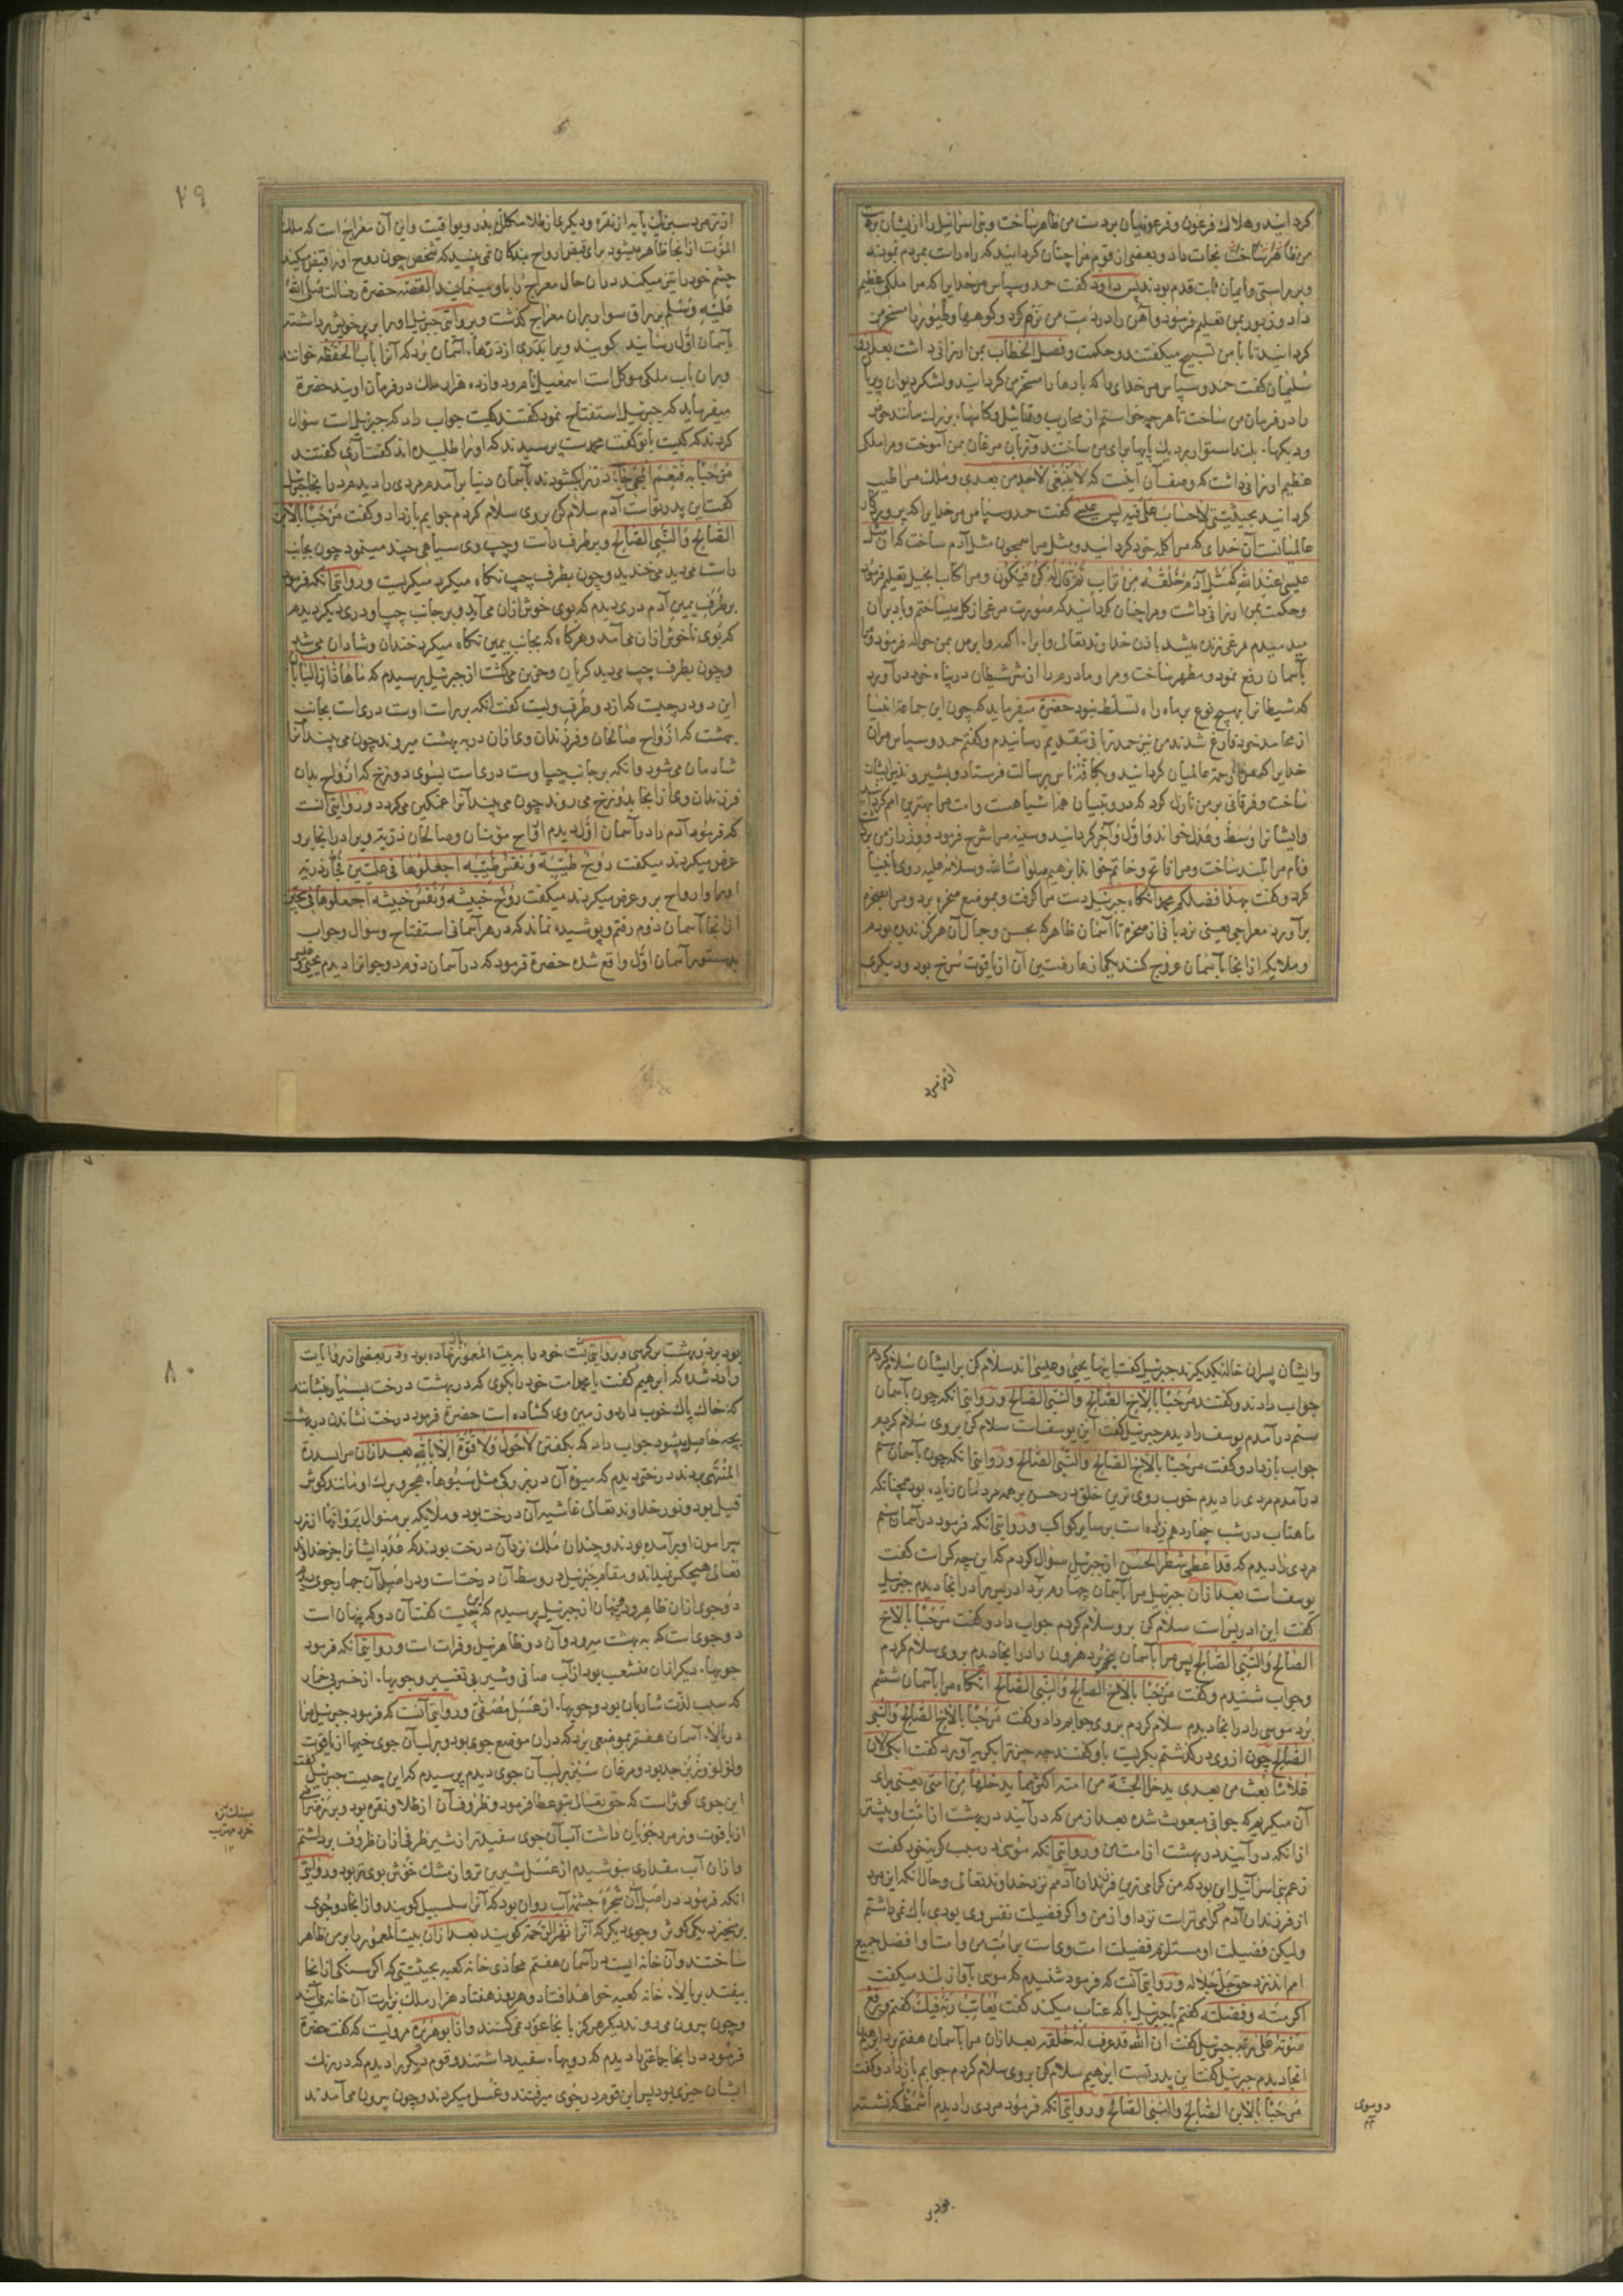 کردانید و هلاک فرعون و فرعونیان بر دست من ظاهر ساخت و بنی اسرائیل را از ایشان بر دست
من ظاهر ساخت نجات داد و بعضی از قوم مرا چنان کردانید که راه راست بمردم نمودند
و براستی و ایمان ثابت قدم بودند پس داود گفت حمد و سپاس مر خدایرا که مرا ملکی عظیم
داد و زبور بمن تعلیم فرمود و آهن را در دست من نرم کرد و کوهها و طیور را مسخر من
کردانید تا با من تسبیح میگفتند و حکمت و فصل الخطاب بمن ارزانی داشت بعد از آن
سلیمان گفت حمد و سپاس مر خدای را که بادها را مسخر من کردانید و لشکر دیوان و پریان
را در فرمان من ساخت تا هر چه خواستم از محاریب و تماثیل و کاسهاء بزرک مانند حوض
و دیکهاء بلند استوار بر دیک پایها برای من ساختند و زبان مرغان بمن آموخت و مرا ملکی
عظیم ارزانی داشت که وصف آن اینست که لا ینبغی لاحد من بعدی و ملک مرا طیب
کردانید بحیثیتی لا حساب علی فیه پس عیسی گفت حمد و سپاس مر خدایرا که پروردکار
عالمیانست آن خدای که مرا کلمه خود کردانید و مثل مرا همچون مثل آدم ساخت که ان مثل
عیسی عند الله کمثل آدم خلقه من تراب ثم قال له کن فیکون و مرا کتاب انجیل تعلیم فرمود
و حکمت بمن ارزانی داشت و مرا چنان کردانید که صورت مرغی از کل میساختم و باد در آن
میدمیدم مرغی زنده میشد باذن خداوند تعالی و ابراء اکمه و ابرص بمن حواله فرمود و مرا
بآسمان رفع نمود و مطهر ساخت و مرا و مادرم را از شر شیطان در پناه خود درآورد
که شیطانرا بهیچ نوع بر ما راه تسلط نبود حضرة میفرماید که چون این جماعة انبیا
از محامد خود فارغ شدند من نیز حمد ترا بتقدیم رسانیدم و کفتم حمد و سپاس مر آن
خدایرا که مرا رحمة عالمیان کردانید و بکافه ناس برسالت فرستاد و بشیر و نذیر ایشان
ساخت و فرقانی بر من نازل کرد که در و تبیان همه اشیا هست و امت مرا بهترین امم کردانید
و ایشانرا وسط و عدل خواند و اول و آخر کردانید و سینه مرا شرح فرمود و وزر از من برداشت
و نام مرا بلند ساخت و مرا فاتح و خاتم خواند ابرهیم صلوات الله و سلامه علیه روی بانبیا
کرد و گفت بهذا فضلکم محمد آنکاه جبرئیل دست مرا کرفت و بموضع صخره برد و مرا بصخره
برآورد معراجی یعنی نردبانی از صخره تا آسمان ظاهر که بحسن و جمال آن هرکز ندیده بودم
و ملایکه از انجا بآسمان عروج کنند یکی از عارضتین آن از یاقوت سرخ بود و دیکری
از زمرد
۷۹
از زمرد سبز یک پایه از نقره و دیکری از طلا مکلل بدر و یواقیت و این آن معراج است که ملک
الموت از انجا ظاهر میشود برای قبض ارواح بندکان نمی بینید که شخص چون روح او را قبض میکنند
چشم خود را تیز میکند در آن حال معراج را باو مینمایند القصه حضرة رسالت صلی الله
علیه وسلم بر براق سوار بر آن معراج کذشت و بروایتی جبرئیل او را بر پر خویش برداشته
بآسمان اول رسانید کویند ویرا بدری از درهاء آسمان برد که آنرا باب الحفظه خوانند
و بر آن باب ملکی موکل است اسمعیل نام و دوازده هزار ملک در فرمان اویند حضرة
میفرماید که جبرئیل استفتاح نمود کفتند کیست جواب داد که جبرئیل است سؤال
کردند که کیست با تو گفت محمدست پرسیدند که او را طلبیده اند کفت آری کفتند
مرحبا به فنعم المجئ جاء در را بکشودند بآسمان دنیا برآمدم مردی را دیدم در انجا جبرئیل
گفت این پدر تواست آدم سلام کن بر وی سلام کردم جوابم باز داد و گفت مرحبا بالابن
الصالح والنبی الصالح و بر طرف راست و چپ وی سیاهی چند مینمود چون بجانب
راست می دید می خندید و چون بطرف چپ نکاه میکرد میکریست و روایتی آنکه فرمود
بر طرف یمین آدم دری دیدم که بوی خوش از آن می آید و بر جانب چپ او دری دیکر دیدم
که بوی ناخوش از آن می آمد و هرکاه که بجانب یمین نکاه میکرد خندان و شادان می شد
و چون بطرف چپ می دید کریان و حزین می کشت از جبرئیل پرسیدم که ما هاذان البابان
این دو در چیست که از دو طرف ویست گفت آنکه بر راست اوست دری است بجانب
بهشت که ارواح صالحان و فرزندان وی از آن در به بهشت میروند چون می بیند آنرا
شادمان می شود و آنکه بر جانب چپ اوست دری است بسوی دوزخ که ارواح بدان
فرزندان وی از انجا بدوزخ می روند چون می بیند آنرا غمکین می کردد و روایتی آنست
که فرمود آدم را در آسمان اول دیدم ارواح مؤمنان و صالحان ذریه ویرا در انجا برو
عرض میکردند میگفت روح طیبة و نفس طیبه اجعلوها فی علیین و فجار ذریه
او را و ارواح بر و عرض میکردند میکفت روح خبیثه و نفس خبیثه اجعلوها فی سجین
از انجا بآسمان دوم رفتم و پوشیده نماند که در هر آسمانی استفتاح و سؤال و جواب
بدستور آسمان اول واقع شده حضرة فرمود که در آسمان دوم دو جوانرا دیدم یحیی و عیسی
و ایشان پسران خاله یکدیکرند جبرئیل گفت اینها یحیی و عیسی اند سلام کن بر ایشان سلام کردم
جواب دادند و کفتند مرحبا بالاخ الصالح والنبی الصالح و روایتی آنکه چون بآسمان
سیم درآمدم یوسف را دیدم جبرئیل گفت این یوسف است سلام کن بر وی سلام کردم
جواب باز داد و گفت مرحبا بالاخ الصالح والنبی الصالح و روایتی آنکه چون بآسمان سیم
درآمدم مردی را دیدم خوب روی ترین خلق در حسن بر همه مردمان زیاده بود همچنانکه
ماهتاب در شب چهاردهم زیاده است بر سایر کواکب و روایتی آنکه فرمود در آسمان سیم
مردی را دیدم که قد اعطی شطر الحسن از جبرئیل سؤال کردم که این چه کس است گفت
یوسف است بعد از آن جبرئیل مرا بآسمان چهارم برد ادریس را در انجا دیدم جبرئیل
گفت این ادریس است سلام کن برو سلام کردم جواب داد و گفت مرحبا بالاخ
الصالح والنبی الصالح پس مرا بآسمان پنجم برد هرون را در انجا دیدم بر وی سلام کردم
و جواب شنیدم و گفت مرحبا بالاخ الصالح والنبی الصالح آنکاه مرا بآسمان ششم
برد موسی را در انجا دیدم سلام کردم بر وی جوابم داد و گفت مرحبا بالاخ الصالح والنبی
الصالح چون از وی درکذشتم بکریست باو گفتند چه چیز ترا بکریه آورد گفت ابکی لان
غلاما بعث من بعدی یدخل الجنة من امته اکثر مما یدخلها من امتی یعنی برای
آن میکریم که جوانی مبعوث شده بعد از من که درآیند در بهشت از امت او بیشتر
از آنکه درآیند در بهشت از امت من و روایتی آنکه موسی در سبب کریه خود گفت
زعم بنی اسرائیل این بود که من کرامی ترین فرزندان آدمم نزد خداوند تعالی و حال آنکه این مرد
از فرزندان آدم کرامی تر است نزد او از من و اکر فضیلت نفس وی بودی باک نمی داشتم
ولیکن فضیلت او مستلزم فضیلت امت وی است بر امت من و امت او افضل جمیع
امم اند نزد حق جل جلاله و روایتی آنست که فرمود شنیدم که موسی بآواز بلند میکفت
اکرمته و فضلته گفتم یا جبرئیل با که عتاب میکند گفت یعاتب ربه فیک کفتم و یرفع
صوته علی ربه جبرئیل گفت ان الله قد عرف له خلقه بعد از آن مرا بآسمان هفتم برد ابرهیم را
آنجا دیدم جبرئیل گفت این پدر تست ابرهیم سلام کن بر وی سلام کردم جوابم باز داد و گفت
مرحبا بالابن الصالح والنبی الصالح و روایتی آنکه فرمود مردی را دیدم أشمط که نشسته
دو موی
بود بر در
۸۰
بود بر در بهشت بر کرسی و روایتی پشت خود را به بیت المعمور باز نهاده بود و در بعضی از روایات
وارد شده که ابرهیم گفت یا محمد امت خود را بکوی که در بهشت درخت بسیار بنشانند
که خاک پاک خوب دارد و زمین وی کشاده است حضرة فرمود درخت نشاندن در بهشت
بچه حاصل میشود جواب داد که بکفتن لا حول ولا قوة الا بالله بعد از آن مرا بسدرة
المنتهی بردند درختی دیدم که میوه آن در بزرکی مثل سبوهاء هجر و برک او مانند کوش
فیل بود و نور خداوند تعالی غاشیه آن درخت بود و ملایکه بر منوال پروانها از زر
پیرامون او برآمده بودند و چندان ملک نزد آن درخت بودند که عدد ایشانرا جز خداوند
تعالی هیچکس نمیداند و مقام جبرئیل در وسط آن درخت است و در اصل آن چهار جوی دیدم
دو جوی از آن ظاهر و دو پنهان از جبرئیل پرسیدم که این چیست گفت آن دو که پنهان است
دو جوی است که به بهشت میرود و آن دو ظاهر نیل و فرات است و روایتی آنکه فرمود
جویهاء دیکر از آن منشعب بود از آب صافی و شیر بی تغییر و جویهاء از خمر بی خمار
که سبب لذت شاربان بود و جویهاء از عسل مصفی و روایتی آنست که فرمود جبرئیل مرا
در بالاء آسمان هفتم بموضعی برد که در آن موضع جوی بود و بر لب آن جوی خیمها از یاقوت
و لؤلؤ و زبرجد بود و مرغان سبز بر لب آن جوی دیدم پرسیدم که این چیست جبرئیل گفت
این جوی کوثر است که حق تعالی بتو عطا فرمود و ظروف آن از طلا و نقره بود و بر رضراضی
از یاقوت و زمرد جریان داشت آب آن جوی سفیدتر از شیر ظرفی از آن ظروف برداشتم
و از آن آب مقداری بنوشیدم از عسل شیرین تر و از مشک خوش بوی تر بود و روایتی
آنکه فرمود در اصل آن شجره چشمه آب روان بود که آنرا سلسبیل کویند و از انجا دو جوی
بر میخیزد یکی کوثر و جوی دیکر که آنرا نهر الرحمة کویند بعد از آن بیت المعمور را بر من ظاهر
ساختند و آن خانه ایست در آسمان هفتم محاذی خانه کعبه بحیثیتی که اکر سنکی از انجا
بیفتد بر بالاء خانه کعبه خواهد افتاد و هر روز هفتاد هزار ملک بزیارت آن خانه می آیند
و چون بیرون می روند دیکر هرکز بانجا عود نمی کنند و از ابو هریره مرویست که گفت حضرة
فرمود در انجا جماعتی را دیدم که رویهاء سفید داشتند و قوم دیکر را دیدم که در رنک
ایشان چیزی بود پس این قوم در جوی میرفتند و غسل میکردند و چون بیرون می آمدند